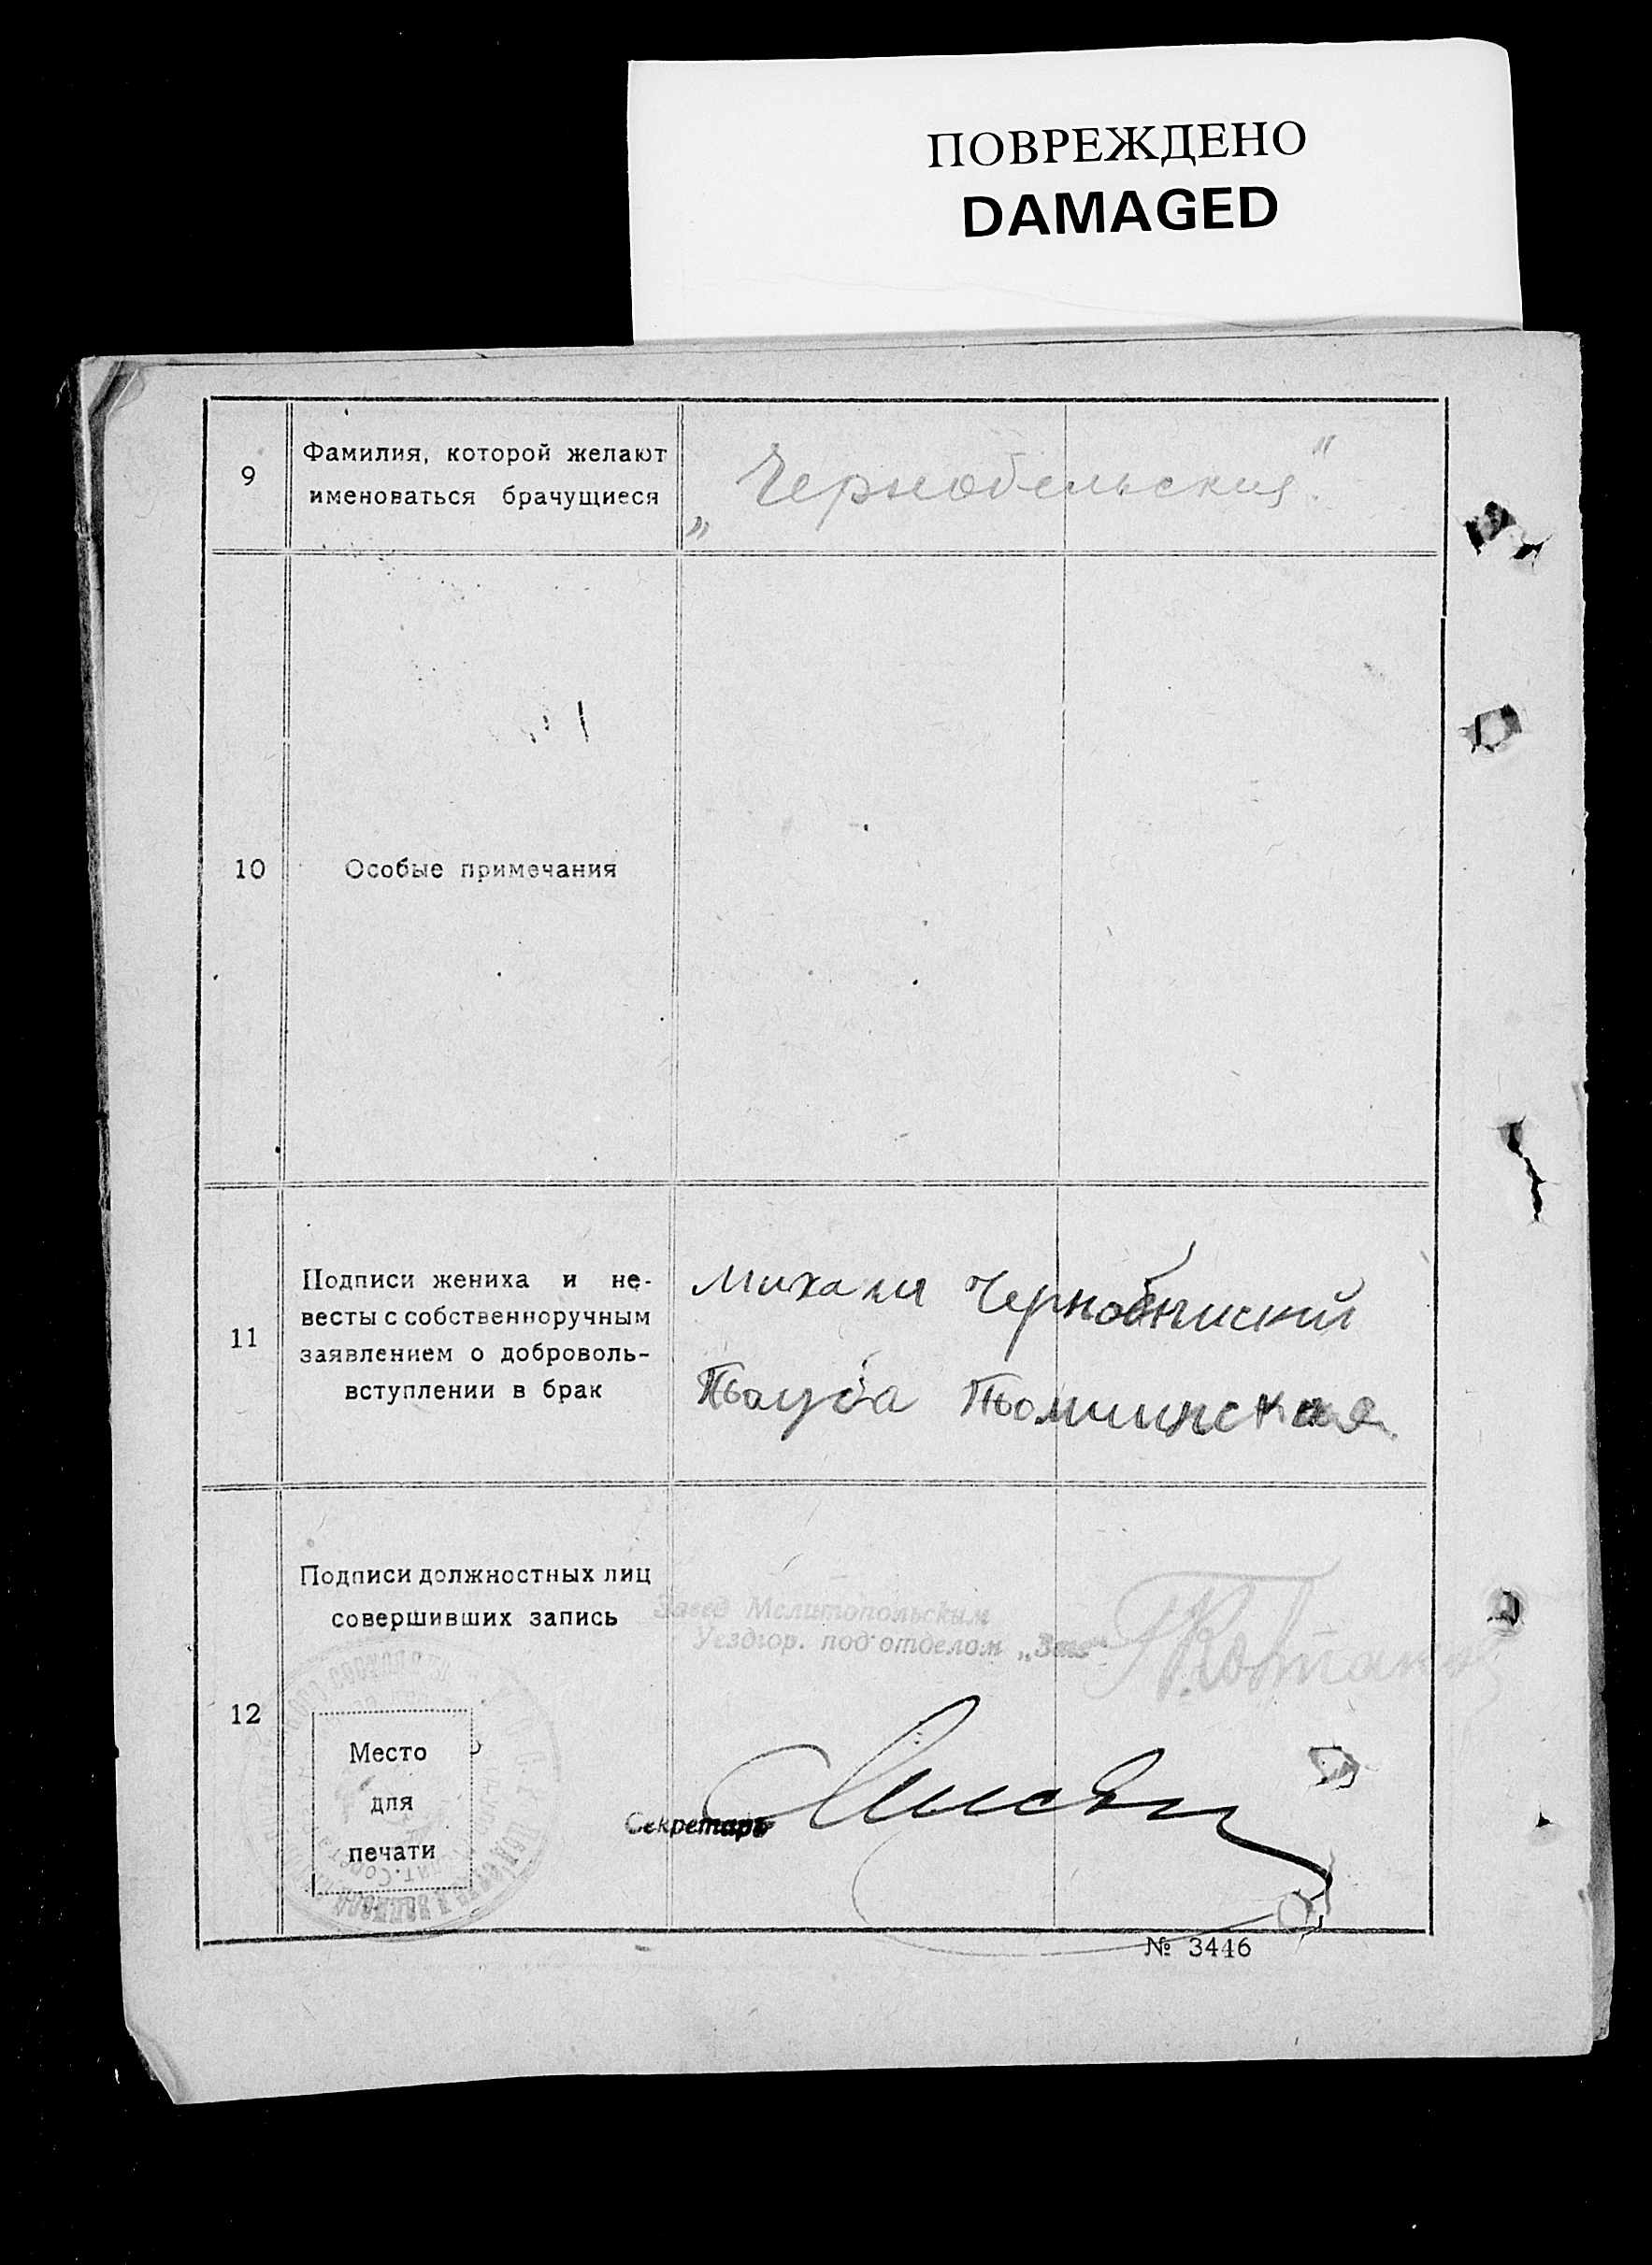 ПОВРЕЖДЕНО
DAMAGED
9
Фамилия, которой желают
именоваться брачущиеся
„Чернобельския"
10
Особые примечания
11
Подписи жениха и не-
весты с собственноручным
заявлением о доброволь-
вступлении в брак
Михаил
12
Подписи должностных лиц
совершивших запись
Завед Мелитопольским
Уездгор. подотделом „Загс"
Место
для
печати
Секретарь
№ 3446